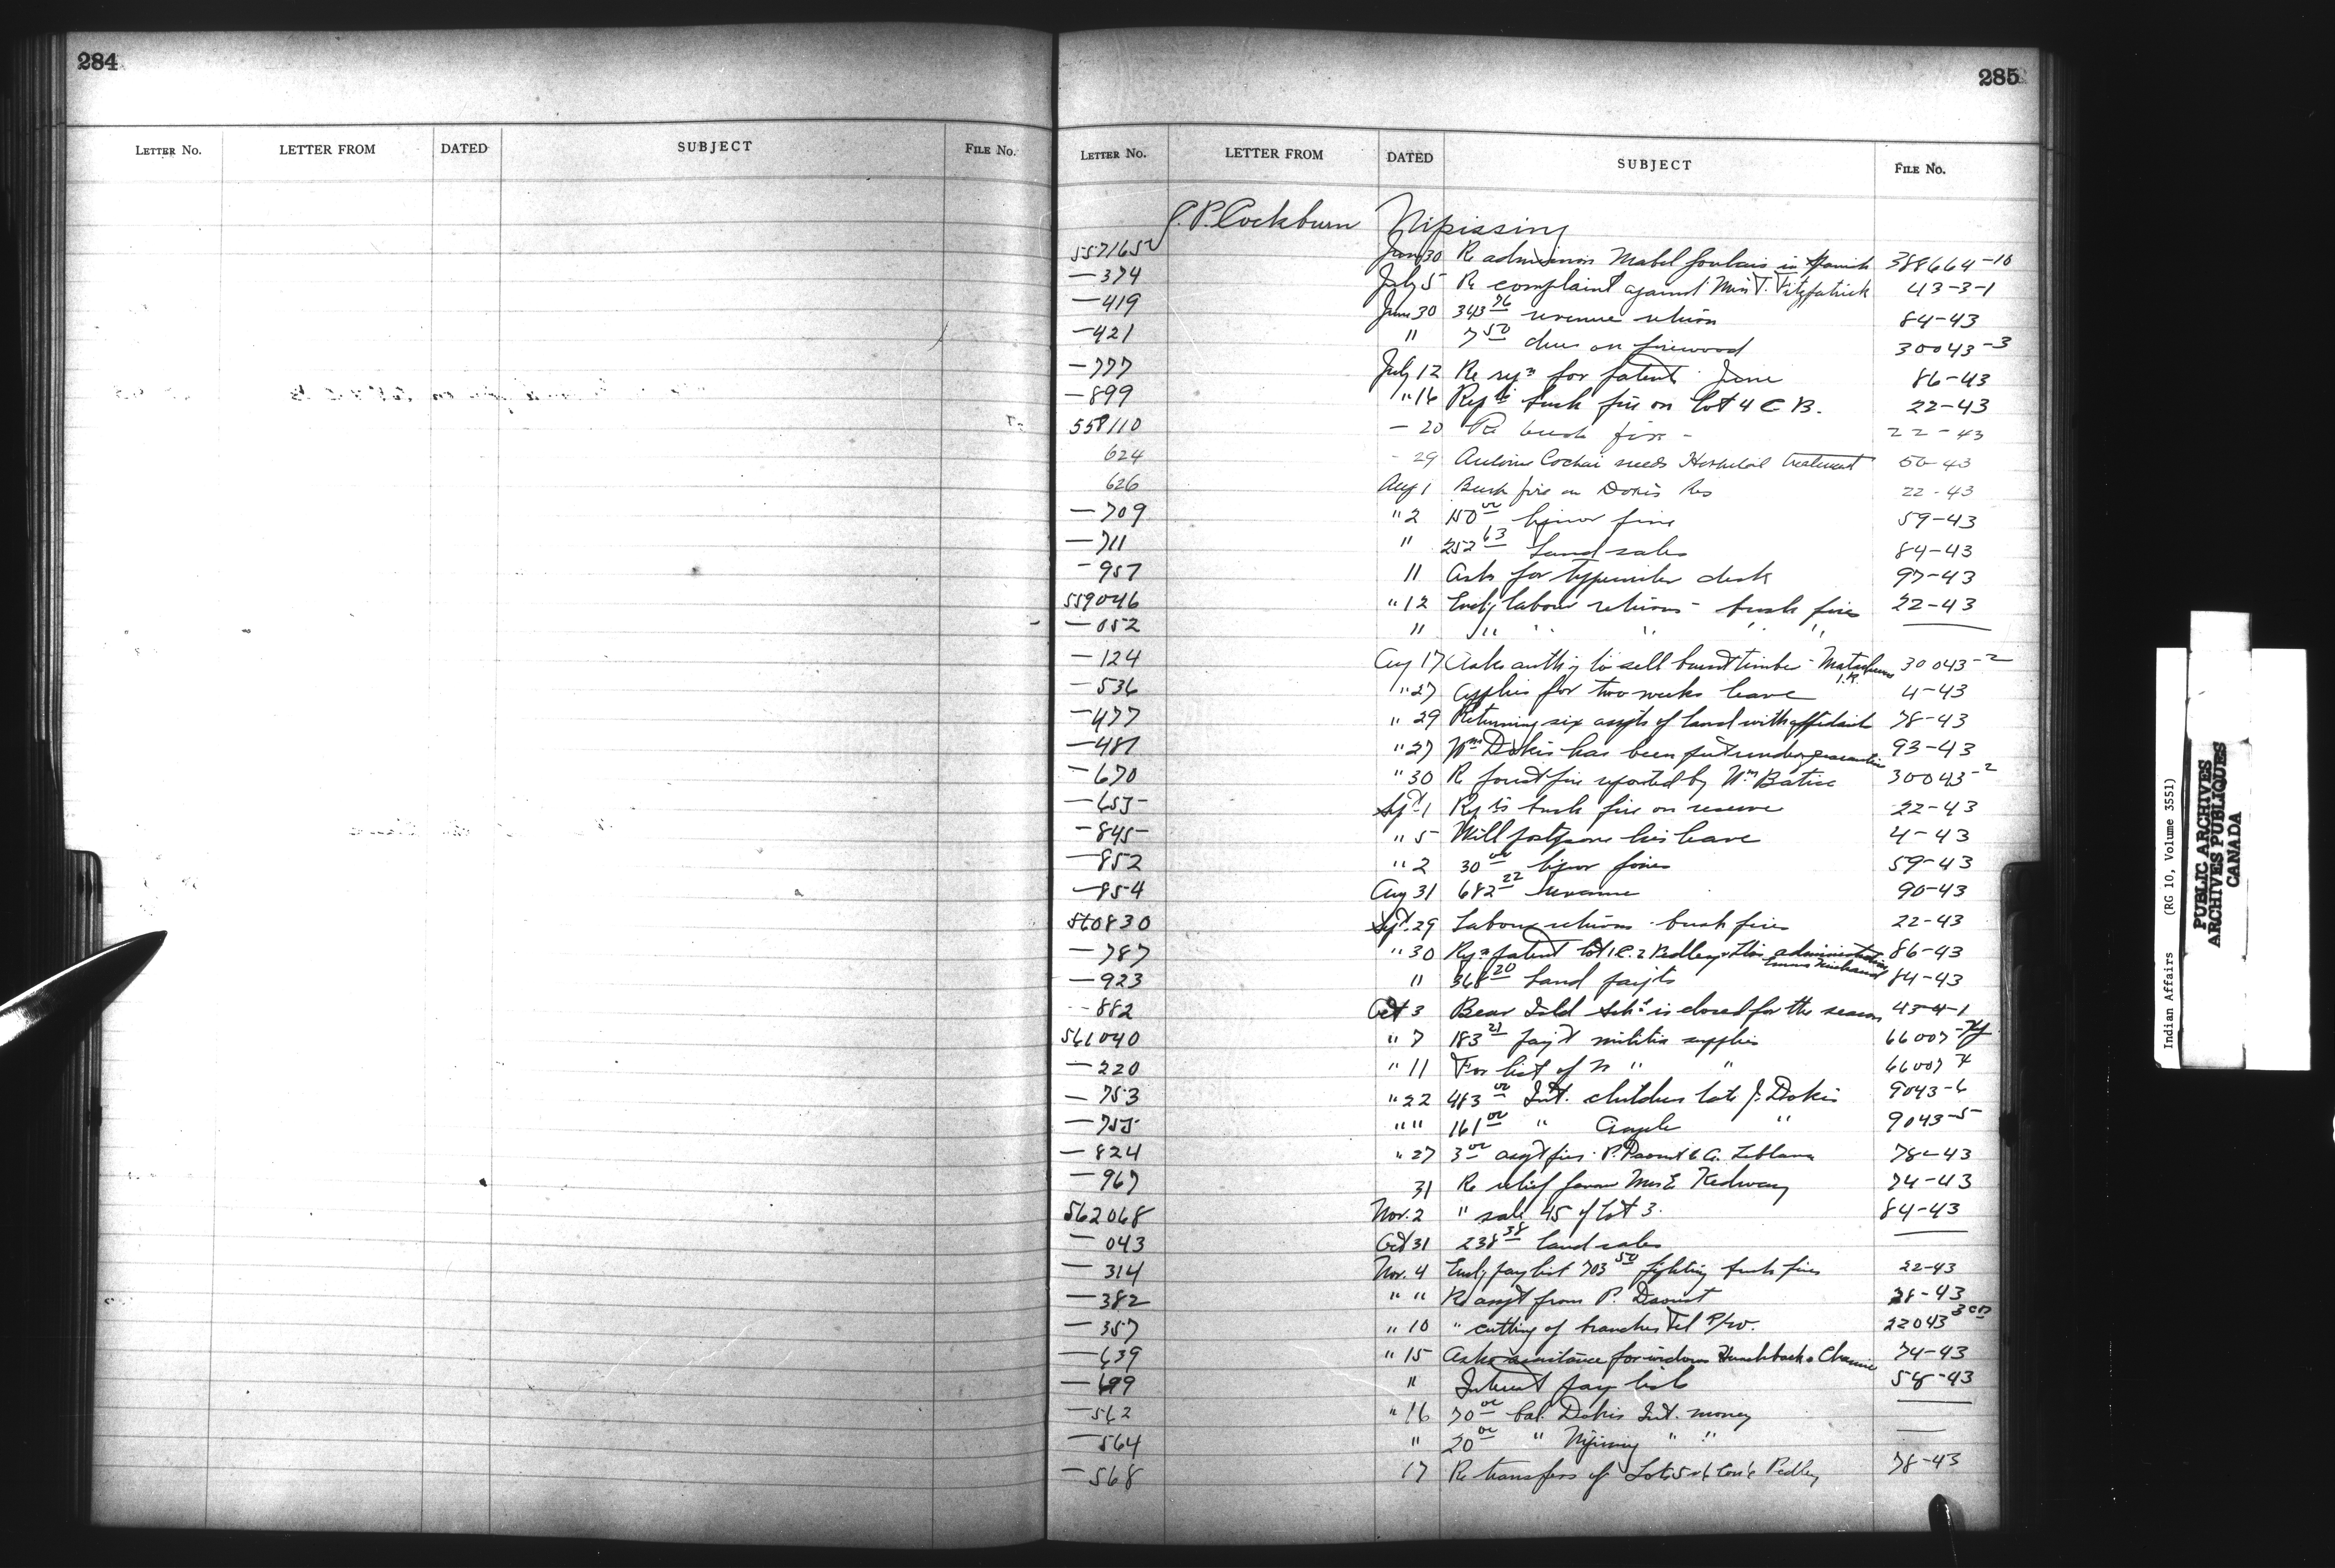 284
LETTER No. LETTER FROM DATED SUBJECT FILE No.
285
LETTER No. LETTER FROM DATED SUBJECT FILE No.
P. Cockburn Nipissing
557165 June 30 Re admission Mabel Goulais in Spanish 388664-10
— 374 July 5 Re complaint against Mrs T. Fitzpatrick 43-3-1
— 419 June 30 343 76 revenue return 84-43
— 421 " 7 50 dues on firewood 30043-3
— 777 July 12 Re rqn for patent June 86-43
— 899 " 16 bush fire on lot 4 C B. 22-43
558110 — 20 Re bush fire - 22-43
624 - 29 Antoine Cochai needs Hospital treatment 56-43
626 Aug 1 Bush fire on Dokis Res 22-43
— 709 " 2 150 00 liquor fine 59-43
— 711 " 252 63 Land sales 84-43
— 957 " Asks for typewriter desk 97-43
559046 " 12 Encl'g labour returns - bush fires 22-43
— 052 " " " " " "
— 124 Aug 17 Asks auth'y to sell burnt timber - Matachewan I.R. 30043-2
— 536 " 27 Applies for two weeks leave 4-43
— 477 " 29 Returning six assgts of land with affidavit 78-43
— 481 " 27 Wm Dokis has been put under quarantine 93-43
— 670 " 30 Re forest fire reported by Wm Batise 30043-2
— 655 Sept 1 bush fire on reserve 22-43
— 845 " 5 Will postpone his leave 4-43
— 852 " 2 30 00 liquor fines 59-43
— 854 Aug 31 682 22 revenue 90-43
560830 Sept. 29 Labour returns - bush fires 22-43
— 787 " 30 Rqn patent lot 1 C. 2 Pedley administration 86-43
— 923 " 368 20 Land paymts 84-43
— 882 Oct 3 Bear Isld Sch. is closed for the season 43-4-1
561040 " 7 183 21 paymt militia supplies 66007
— 220 " 11 For list of " " 66007
— 753 " 22 483 00 Int. children late J. Dokis 9043-6
— 755 " " 161 00 " Angele " 9043-5
— 824 " 27 3 00 assgt fees P. Daoust & A. Leblanc 78-43
— 967 31 Re relief for Mrs E Kedway 74-43
562068 Nov. 2 " sale 45 of lot 3. 84-43
— 043 Oct 31 238 38 land sales
— 314 Nov. 4 Encl'g pay list 703 50 fighting bush fires 22-43
— 382 " " Re assgt from P. Daoust 78-43
— 357 " 10 " cutting of branches Tel P/w. 22043
— 639 " 15 Asks assistance for widows Hunchback & 74-43
— 699 " Interest pay list 58-43
— 562 " 16 70 00 bal. Dokis Int. money
— 564 " 20 00 " Nipissing " "
— 568 17 Re transfers of Lots 5 & 6 Con 6 Pedley 78-43
Indian Affairs (RG 10, Volume 3551)
PUBLIC ARCHIVES
ARCHIVES PUBLIQUES
CANADA